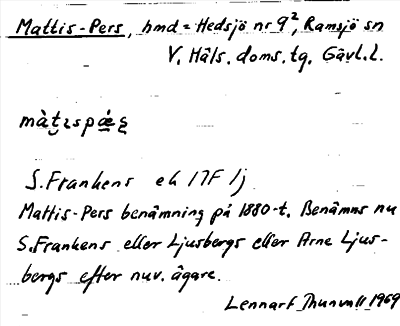 Mattis-Pers, hmd = Hedsjö nr 9², Ramsjö sn
V. Häls. doms. tg. Gävl. l.
S. Frankens ek 17F 1j
Mattis-Pers benämning på 1880-t. Benämns nu
S. Frankens eller Ljusbergs eller Arne Ljus-
bergs efter nuv. ägare.
Lennart Thunvall 1969